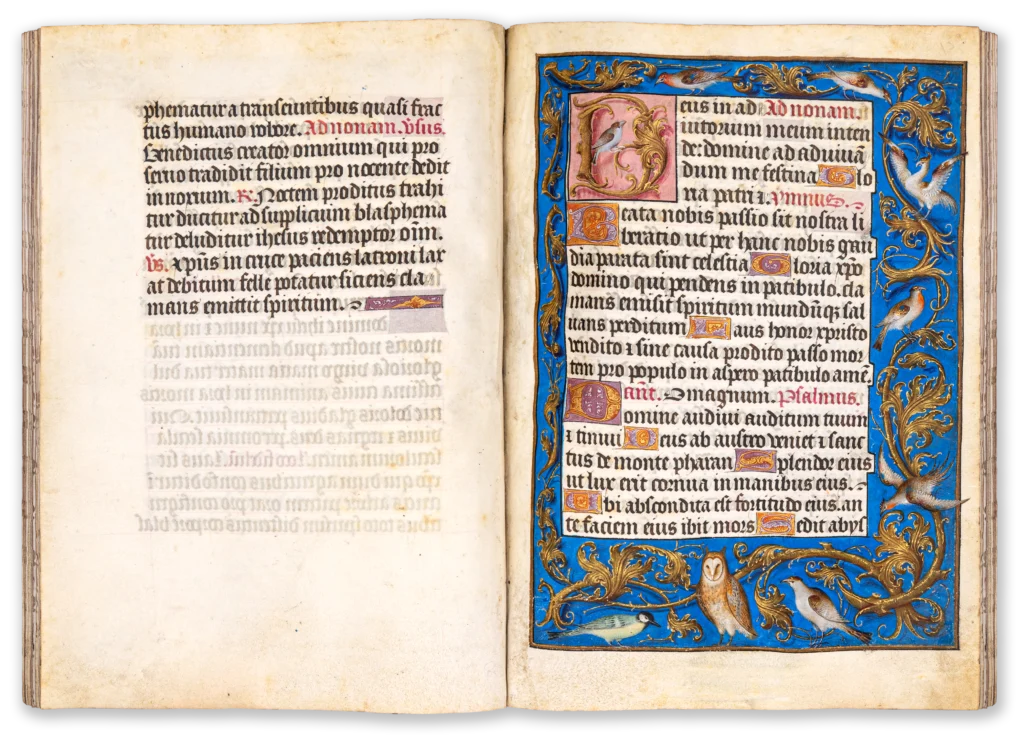 phematur a transeuntibus quasi frac
tus humano robore. Ad nonam. Vsus.
Benedictus creator omnium qui pro
seruo tradidit filium pro nocente dedit
in noxium. R. Noctem proditus trahi
tur ducitur ad supplicium blasphema
tur deluditur ihesus redemptor oīm.
Vs. xp̄us in cruce paciens latroni lax
at debitum felle potatur siciens cla
mans emittit spiritum.
Deus in ad Ad nonam.
iutorium meum inten
de: domine ad adiuuā
dum me festina Glo
ria patri ⁊. Ymnus.
Beata nobis passio sit nostra li
beratio ut per hanc nobis gau
dia parata sint celestia Gloria xp̄o
domino qui pendens in patibulo. cla
mans emisit spiritum mundūq; sal
uans perditum Laus honor xpristo
vendito ⁊ sine causa prodito passo mor
tem pro populo in aspero patibulo amē.
Ant. O magnum. Psalmus.
Domine audiui auditum tuum
⁊ timui Deus ab austro veniet ⁊ sanc
tus de monte pharan Splendor eius
ut lux erit cornua in manibus eius.
Ibi abscondita est fortitudo eius. an
te faciem eius ibit mors Egredit abys